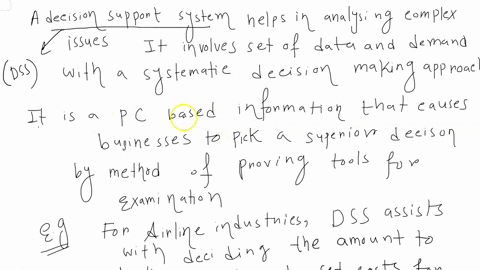 A decision support system helps in analysing complex
issues It involves set of data and demand
(DSS) with a systematic decision making approach
It is a PC based information that causes
buginesses to pick a superior decison
by method of proving tools for
examination
Eg For Airline industries, DSS assists
with deciding the amount to